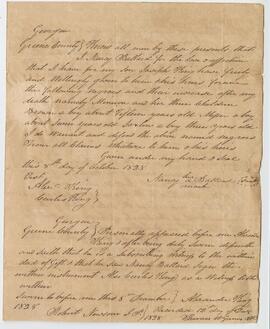 Georgia
Greene County } Know all men by these presents that
I Nancy Bullard for the love & affection
that I have for my Son Joseph King have freely
and Willingly given to him & his heirs forever
the following negroes and their increase after my
death namely Minerva and her three Children
Brown a boy about fifteen years old Myer a boy
about Seven years old a boy about five years old
I do Warrant and defend the above named negroes
from all Claims Whatever to him & his heirs
Given under my hand & Seal
this 8th day of October 1838
Test Nancy Bullard Seal
Alexr King mark
Curtis King
Georgia
Greene County } Personally appeared before me Alexander
King & after being duly Sworn deposeth
and saith that he is a Subscribing Witness to the within
deed of Gift & that he Saw Nancy Bullard Sign the
within instrument Also Curtis King as a Witness to the
within
Sworn to before me this 8 December } Alexander King
1838 Recorded 12 day of Decr
Robert Newsom J.P. } 1838